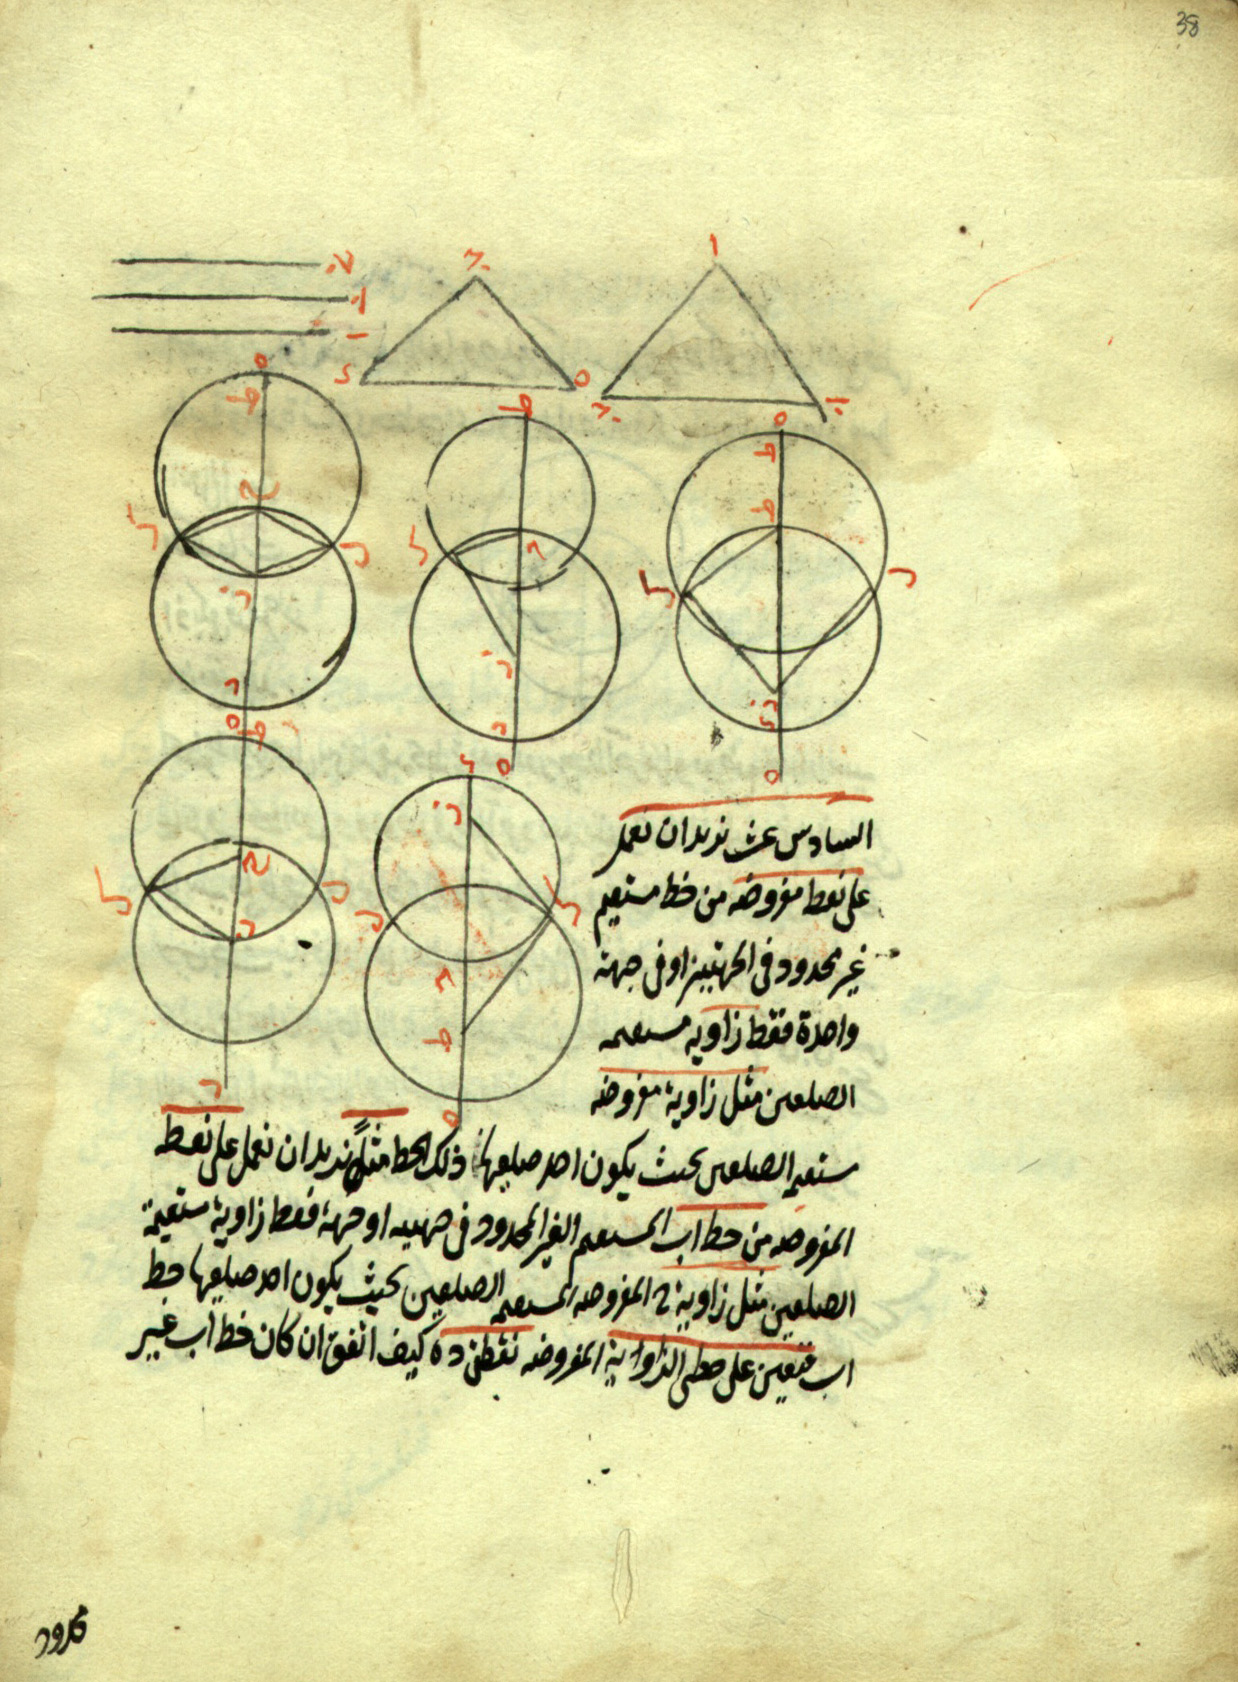 38
السادس عشر نريد ان نعمل
على نقطة مفروضة من خط مستقيم
غير محدود في الجهتين او في جهة
واحدة فقط زاوية مستقيمة
الضلعين مثل زاوية مفروضة
مستقيمة الضلعين بحيث يكون احد ضلعيها ذلك الخط مثلا نريد ان نعمل على نقطة
المفروضة من خط اب المستقيم الغير المحدود في جهتيه او جهة فقط زاوية مستقيمة
الضلعين مثل زاوية ح المفروضة المستقيمة الضلعين بحيث يكون احد ضلعيها خط
اب فنعين على خطي الزاوية المفروضة نقطتي د ه كيف اتفق ان كان خط اب غير
محدود